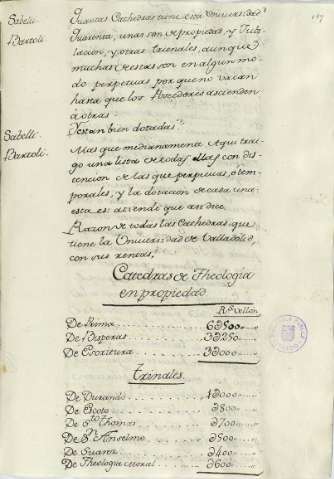 Sabeli.
Bartoli
Quantas Cathedras tiene esta Universidad?
Quarenta, unas son de propiedad, y Jubi-
lacion, y otras trienales, aunque
muchas de estas son en algun mo-
do perpetuas por que no vacan
hasta que los Posedores ascienden
à otras.
Sabelli.
Bartoli.
Y estan bien dotadas?
Mas que medianamente Aqui trai-
go una lista de todas ellas con dis-
tincion de las que perpetuas, ô tem-
porales, y la dotacion de cada una
esta es: atiende que asi dice.
Razon de todas las Cathedras que
tiene la Universidad de Valladolid,
con sus rentas.
Catedras de Theologia
en propiedad
Rs. vellon
De Prima 6500
De Visperas 3250
De Escritura 3000
trinales.
De Durando 1000
De Escoto 800
De Sto Thomas 700
De Sn Anselmo 500
De Suarez 400
De Theologia moral 600